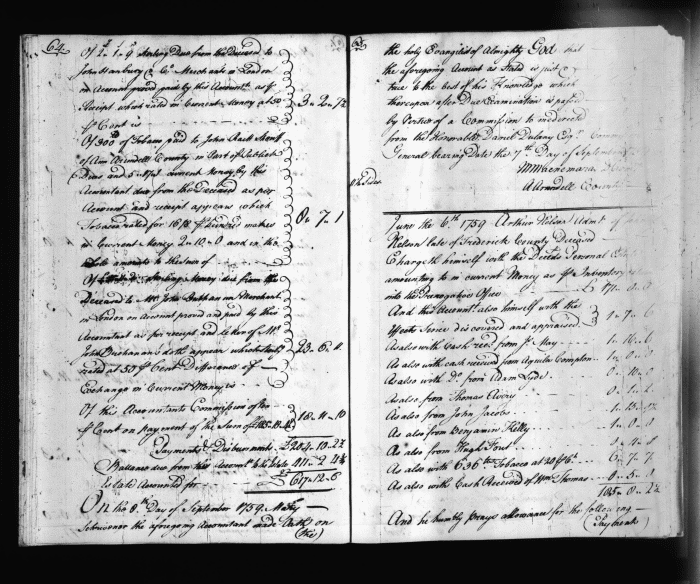 64
Of 2"1"9 Sterling Due from the Deceased to
John Hanbury & Co. Merchants in London
on Account proved paid by this Accountt. as pr
Receipt which rated in Current Money at 50
pr Cent is 3"2"7½
Of 300 lb of Tobacco paid to John Sheriff
of Ann Arundell County in Part of Publick
Dues and Current Money by this
Accountant due from the Deceased as per
Account and receipt appears which
Tobacco rated for 16/8 pr Hundred makes
in Current Money 2"10"0 and in the
whole amounts to the sum of 8"7"1
Of Sterling Money due from the
Deceased to Mr. John Buchanan Merchant
in London on Account proved and paid by this
Accountant as pr receipt and letter of Mr.
John Buchanan doth appear which
rated at 50 pr Cent Difference of
Exchange in Current Money is 23"6"4
Of this Accountants Commission of ten
pr Cent on payment of the Sum of 18"4"10
Payments & Disbursmts. £204"10"2¼
Ballance due from this Accountt. to the
Estate Accounted for £617"12"6
On the 8th. Day of September 1759 Mary
Scrivenor the aforegoing Accountant made Oath on
(the)
the holy Evangelists of Almighty God that
the aforegoing Account as Stated is just &
true to the best of his Knowledge which
thereupon after Due Examination is passed
by Vertue of a Commission to me directed
from the Honourable Daniel Dulany Esqr.
General bearing Date the 7th. Day of September
Arundell County
June the 6th. 1759 Arthur Nelson Admr. of
Nelson late of Frederick County Deceased
Chargeth himself with the Deceds Personal
amounting to in current Money as pr Inventory
into the Prerogative Office
And this Accountt. also himself with the
effects Since discovered and appraised 1"7"6
As also with Cash recd. from Js. May 1"16"6
As also with cash received from Aquila Compton 1"0"0
As also with Do. from Adam 0"10"0
As also from Thomas Avery 0"1"2
As also from John Jacobs
As also from Benjamin Kelly 1"0"0
As also from Hugh
As also with 636 lb Tobacco at 6"7"7
As also with Cash Received of Wm. Thomas 0"5"0
And he humbly prays allowance for the following
(Payments)